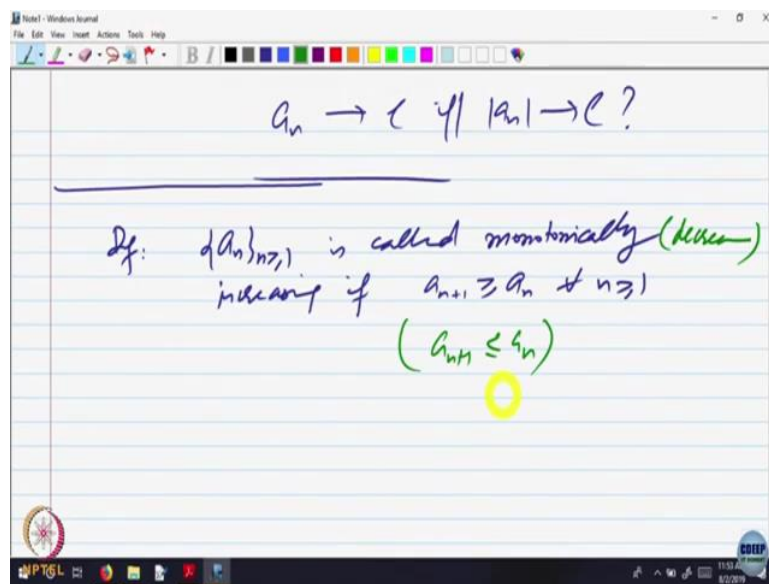 Note1 - Windows Journal
File Edit View Insert Actions Tools Help
B I
aₙ → l iff |aₙ| → l ?
Df: {aₙ}ₙ≥₁ is called monotonically (decrea)
increasing if aₙ₊₁ ≥ aₙ ∀ n ≥ 1
( aₙ₊₁ ≤ aₙ )
CDEEP
NPTEL
11:53 A
8/2/2019